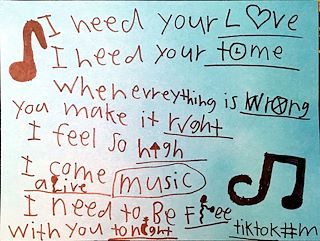 I need your L♡ve
I need your tome
Whenevreything is Wrong
You make it right
I feel so high
I come
alive music
I need to Be Free
With you tonight tiktok#m